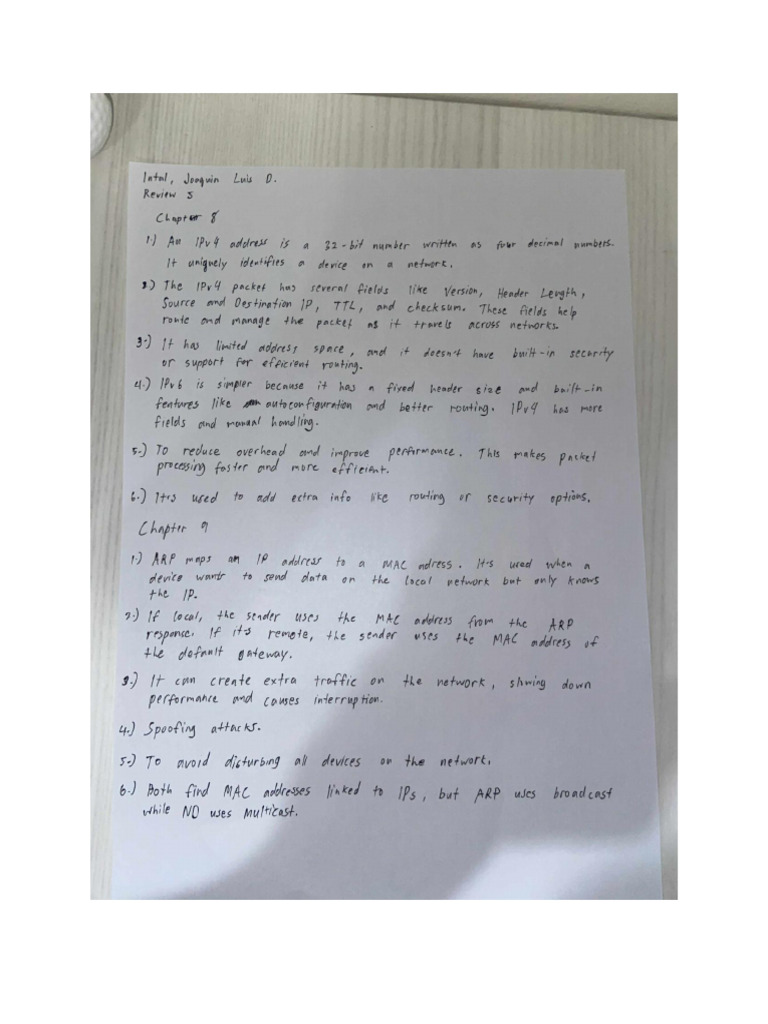 Intal, Joaquin Luis D.
Review 5
Chapter 8
1.) An IPv4 address is a 32-bit number written as four decimal numbers.
It uniquely identifies a device on a network.
2.) The IPv4 packet has several fields like Version, Header Length,
Source and Destination IP, TTL, and checksum. These fields help
route and manage the packet as it travels across networks.
3.) It has limited address space, and it doesn't have built-in security
or support for efficient routing.
4.) IPv6 is simpler because it has a fixed header size and built-in
features like autoconfiguration and better routing. IPv4 has more
fields and manual handling.
5.) To reduce overhead and improve performance. This makes packet
processing faster and more efficient.
6.) It's used to add extra info like routing or security options.
Chapter 9
1.) ARP maps an IP address to a MAC adress. It's used when a
device wants to send data on the local network but only knows
the IP.
2.) If local, the sender uses the MAC address from the ARP
response. If it's remote, the sender uses the MAC address of
the default gateway.
3.) It can create extra traffic on the network, slwing down
performance and causes interruption.
4.) Spoofing attacks.
5.) To avoid disturbing all devices on the network.
6.) Both find MAC addresses linked to IPs, but ARP uses broadcast
while ND uses multicast.